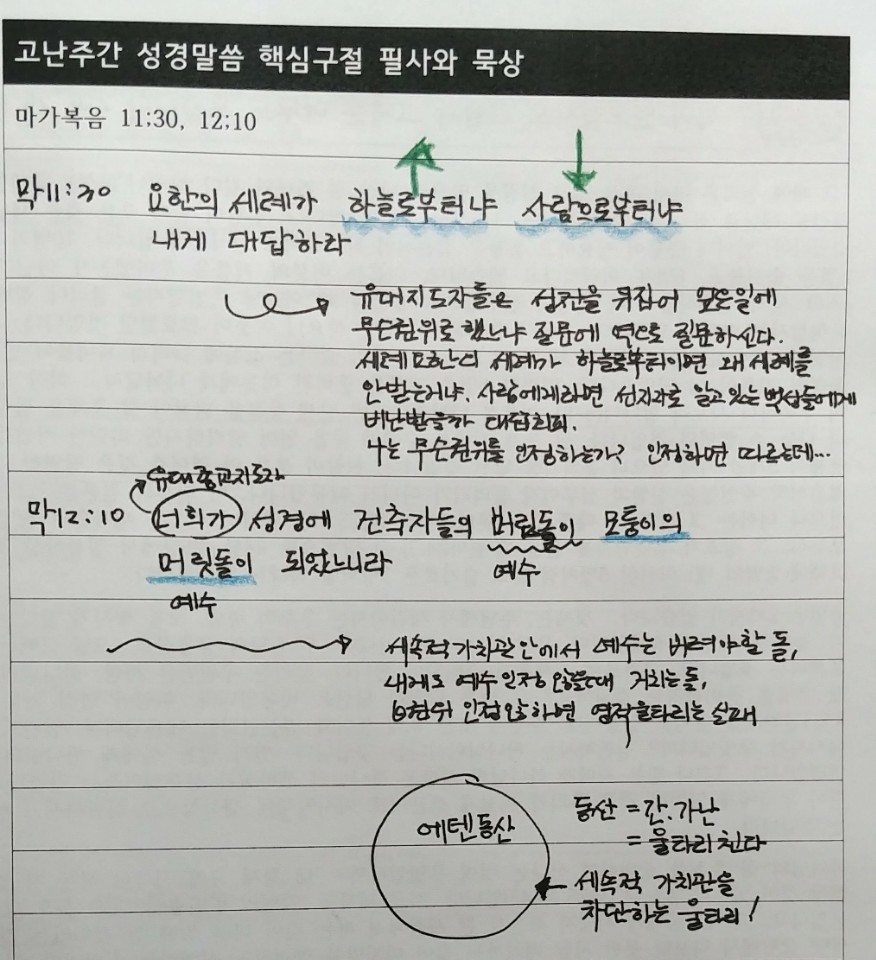 고난주간 성경말씀 핵심구절 필사와 묵상
마가복음 11;30, 12:10
막11:30 요한의 세례가 하늘로부터냐 사람으로부터냐
내게 대답하라
유대지도자들은 성전을 뒤집어 엎은일에
무슨권위로 했느냐 질문에 역으로 질문하신다.
세례요한의 세례가 하늘로부터이면 왜 세례를
안받는거냐. 사람에게라면 선지자로 알고있는 백성들에게
비난받을까 대답회피.
나는 무슨권위를 인정하는가? 인정하면 따르는데...
유대종교지도자
막12:10 너희가 성경에 건축자들의 버림돌이 모퉁이의
예수
머릿돌이 되었느니라
예수
세속적가치관안에서 예수는 버려야할 돌,
내게도 예수인정 않을때 거치는돌,
인정않하면 영적울타리는 실패
에덴동산
동산 = 간.가난
= 울타리친다
세속적 가치관을
차단하는 울타리!